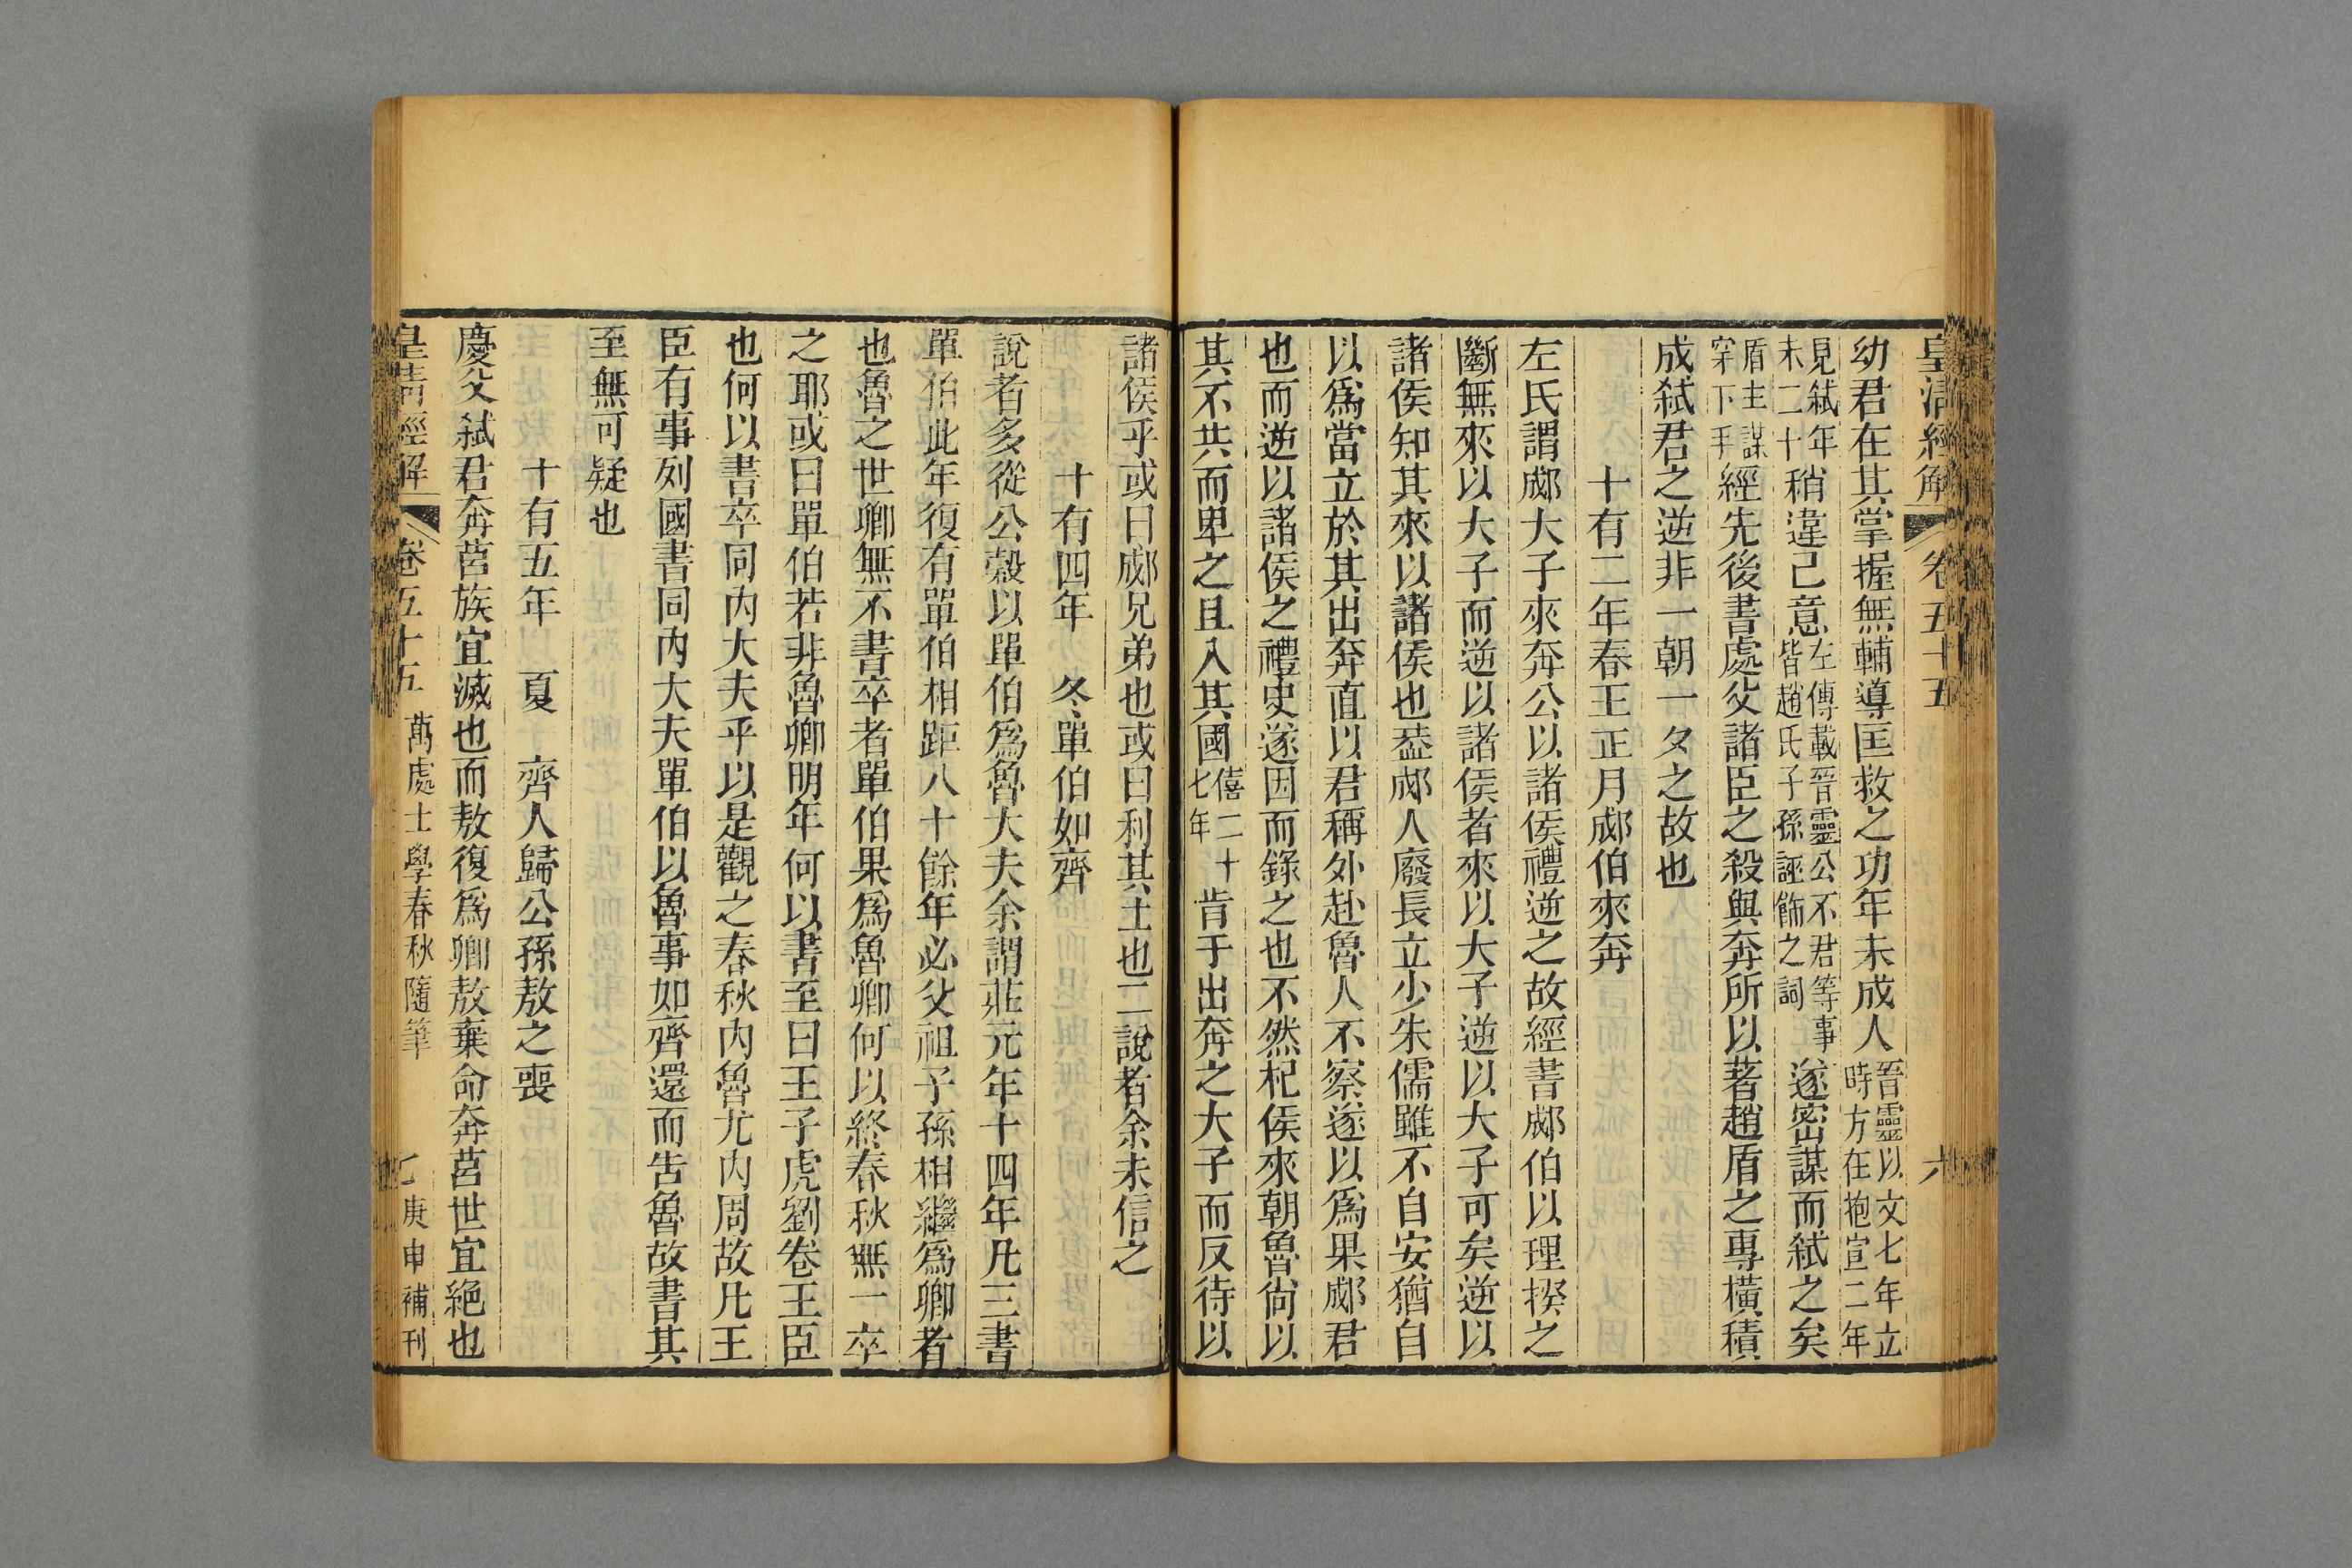 皇清經解 卷五十五 六
幼君在其掌握無輔導匡救之功年未成人晉靈以文七年立時方在抱宣二年
見弑年未二十稍違己意左傳載晉靈公不君等事皆趙氏子孫誣飾之詞遂密謀而弑之矣
盾主謀穿下手經先後書處父諸臣之殺與奔所以著趙盾之專橫積
成弑君之逆非一朝一夕之故也
十有二年春王正月郕伯來奔
左氏謂郕大子來奔公以諸侯禮逆之故經書郕伯以理揆之
斷無來以大子而逆以諸侯者來以大子逆以大子可矣逆以
諸侯知其來以諸侯也葢郕人廢長立少朱儒雖不自安猶自
以爲當立於其出奔直以君稱外赴魯人不察遂以爲果郕君
也而逆以諸侯之禮史遂因而錄之也不然杞侯來朝魯尙以
其不共而卑之且入其國僖二十七年肯于出奔之大子而反待以
諸侯乎或曰郕兄弟也或曰利其土也二說者余未信之
十有四年 冬單伯如齊
說者多從公穀以單伯爲魯大夫余謂莊元年十四年凡三書
單伯此年復有單伯相距八十餘年必父祖子孫相繼爲卿者
也魯之世卿無不書卒者單伯果爲魯卿何以終春秋無一卒
之耶或曰單伯若非魯卿明年何以書至曰王子虎劉卷王臣
也何以書卒同內大夫乎以是觀之春秋內魯尤內周故凡王
臣有事列國書同內大夫單伯以魯事如齊還而告魯故書其
至無可疑也
十有五年 夏 齊人歸公孫敖之喪
慶父弑君奔莒族宜滅也而敖復爲卿敖棄命奔莒世宜絕也
皇清經解 卷五十五 萬處士學春秋隨筆 七 庚申補刊